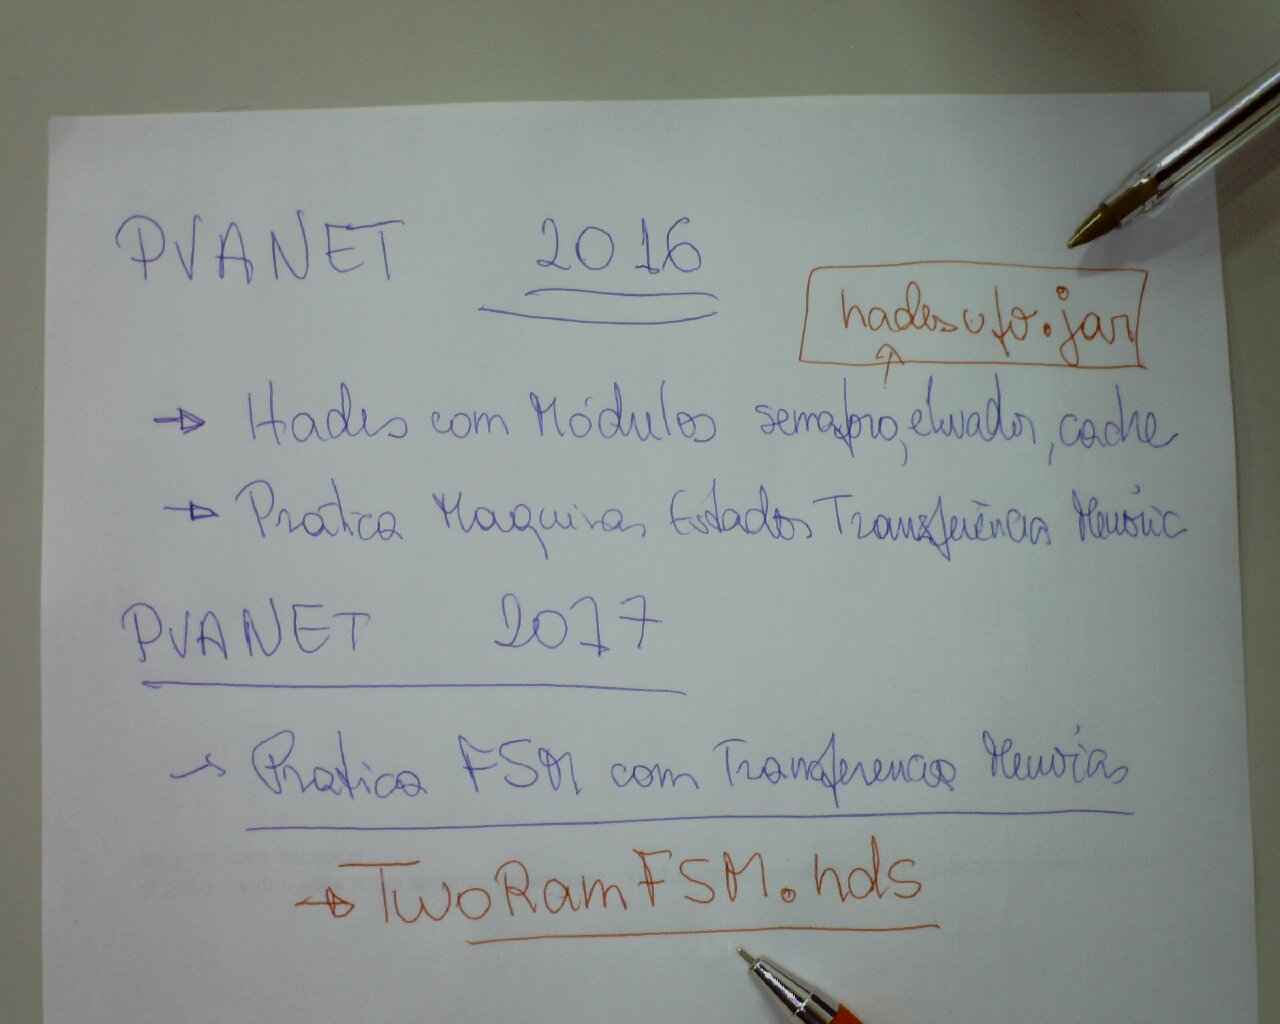 PVANET 2016
hadesufv.jar
→ Hades com Módulos semaforo, elevador, cache
→ Prática Maquinas Estados Transferências Memóric
PVANET 2017
→ Pratica FSM com Transferencas Memorias
→ TwoRamFSM.hds